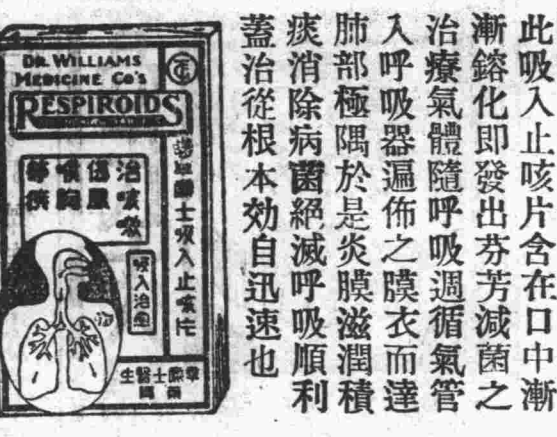 此吸入止咳片含在口中漸
漸鎔化即發出芬芳減菌之
治療氣體隨呼吸週循氣管
入呼吸器遍佈之膜衣而達
肺部極隅於是炎膜滋潤積
痰消除病菌絕滅呼吸順利
蓋治從根本効自迅速也
DR. WILLIAMS
MEDICINE CO'S
RESPIROIDS
韋廉士吸入止咳片
治咳嗽
傷風
吸入治
韋廉士醫生
藥局